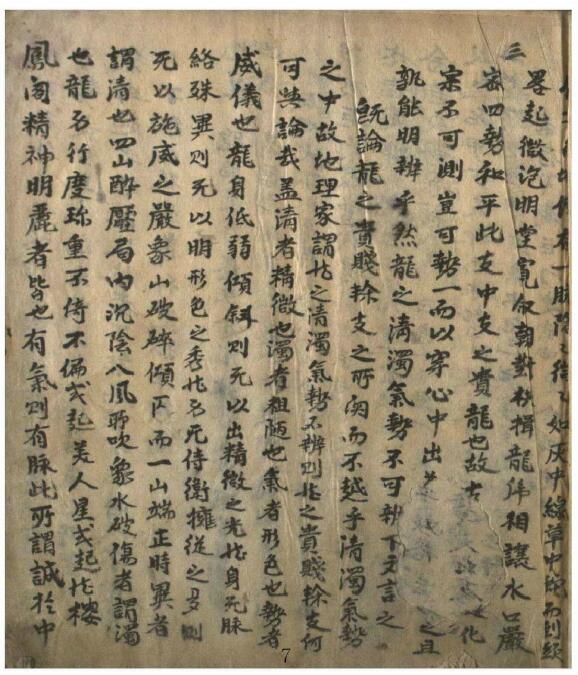 有一脈隱々如灰中線草中蛇而到頭
三
畧起微泡明堂寬敞朝對拱揖龍虎相讓水口嚴
密四勢和平此支中支之貴龍也故古化
宗不可測豈可勢一而以穿心中出之且
孰能明辨乎然龍之清濁氣勢不可辨下文言之
旣論龍之貴賤榦支之所關而不越乎清濁氣勢
之中故地理家謂龍之清濁氣勢不辨則龍之貴賤榦支何
可與論哉盖清者精微也濁者粗陋也氣者形色也勢者
威儀也龍身低弱傾斜則无以出精微之光龍身无脉
絡殊異則无以明形色之秀龍若无侍衛擁從之多則
无以施威之嚴象山破碎傾仄而一山端正特異者
謂清也四山醉壓局內沉陰八風所吹象水破傷者謂濁
也龍若行度珍重不倚不偏或起美人星或起龍樓
鳳閣精神明麗者皆也有氣則有脉此所謂誠於中
7